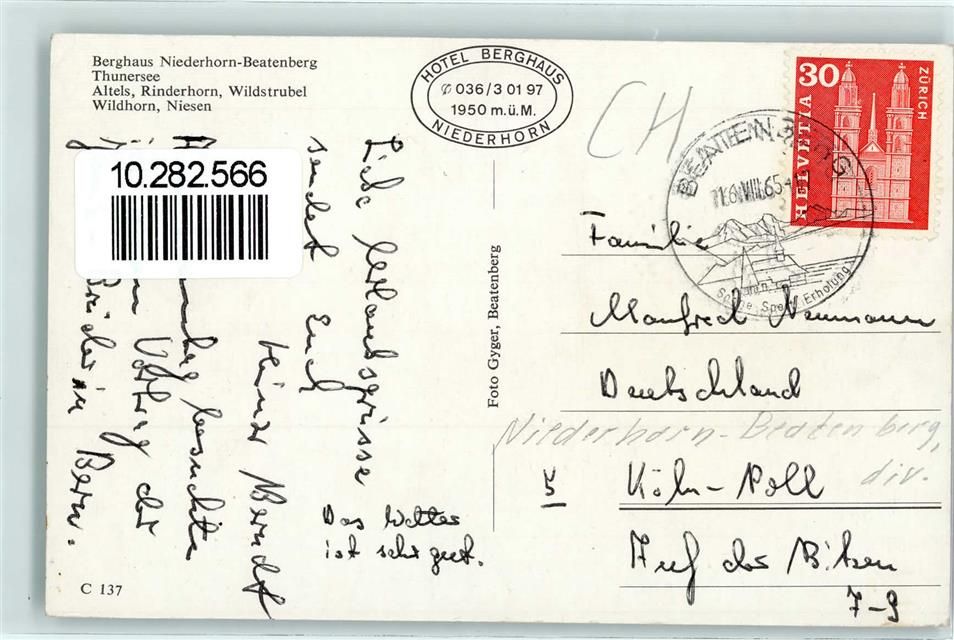 Berghaus Niederhorn-Beatenberg
Thunersee
Altels, Rinderhorn, Wildstrubel
Wildhorn, Niesen
HOTEL BERGHAUS
✆ 036/3 01 97
1950 m.ü.M.
NIEDERHORN
CH
30
ZÜRICH
HELVETIA
BEATENBERG
Sonne Sport Erholung
10.282.566
Liebe Urlaubsgrüsse
sendet Euch
Heinz Berndt
besuchte
Vortrag der
Brüder in Bern.
Das Wetter
ist sehr gut.
Foto Gyger, Beatenberg
Familie
Manfred Neumann
Deutschland
Niederhorn-Beatenberg,
div.
5 Köln-Poll
Auf der Bitzen
7-9
C 137